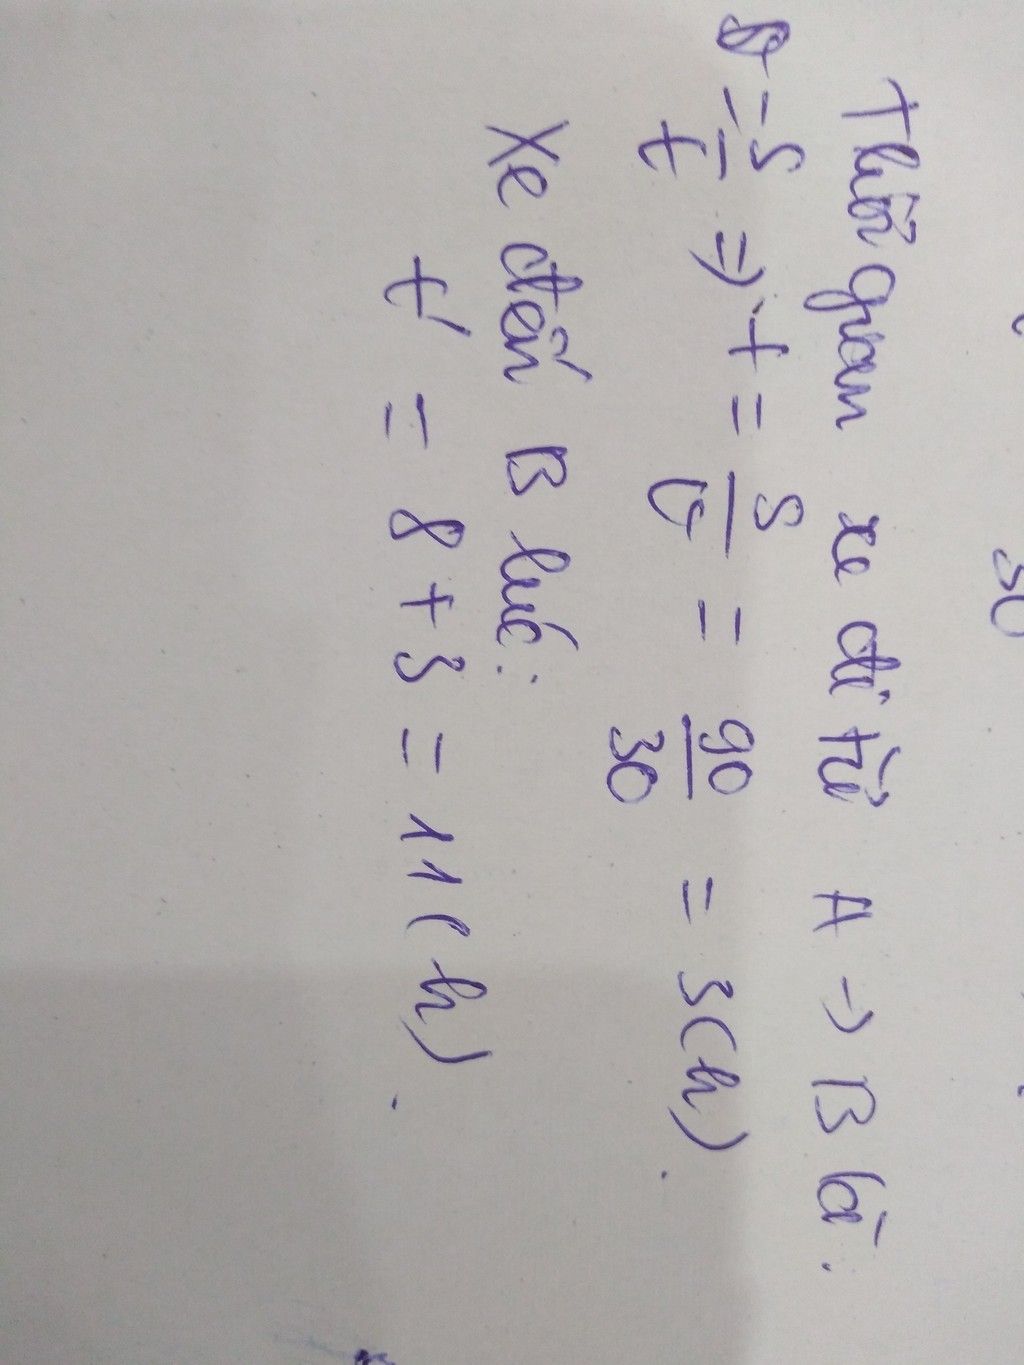 Thời gian xe đi từ A → B là:
v = s/t => t = s/v = 90/30 = 3(h).
Xe đến B lúc:
t' = 8 + 3 = 11(h).